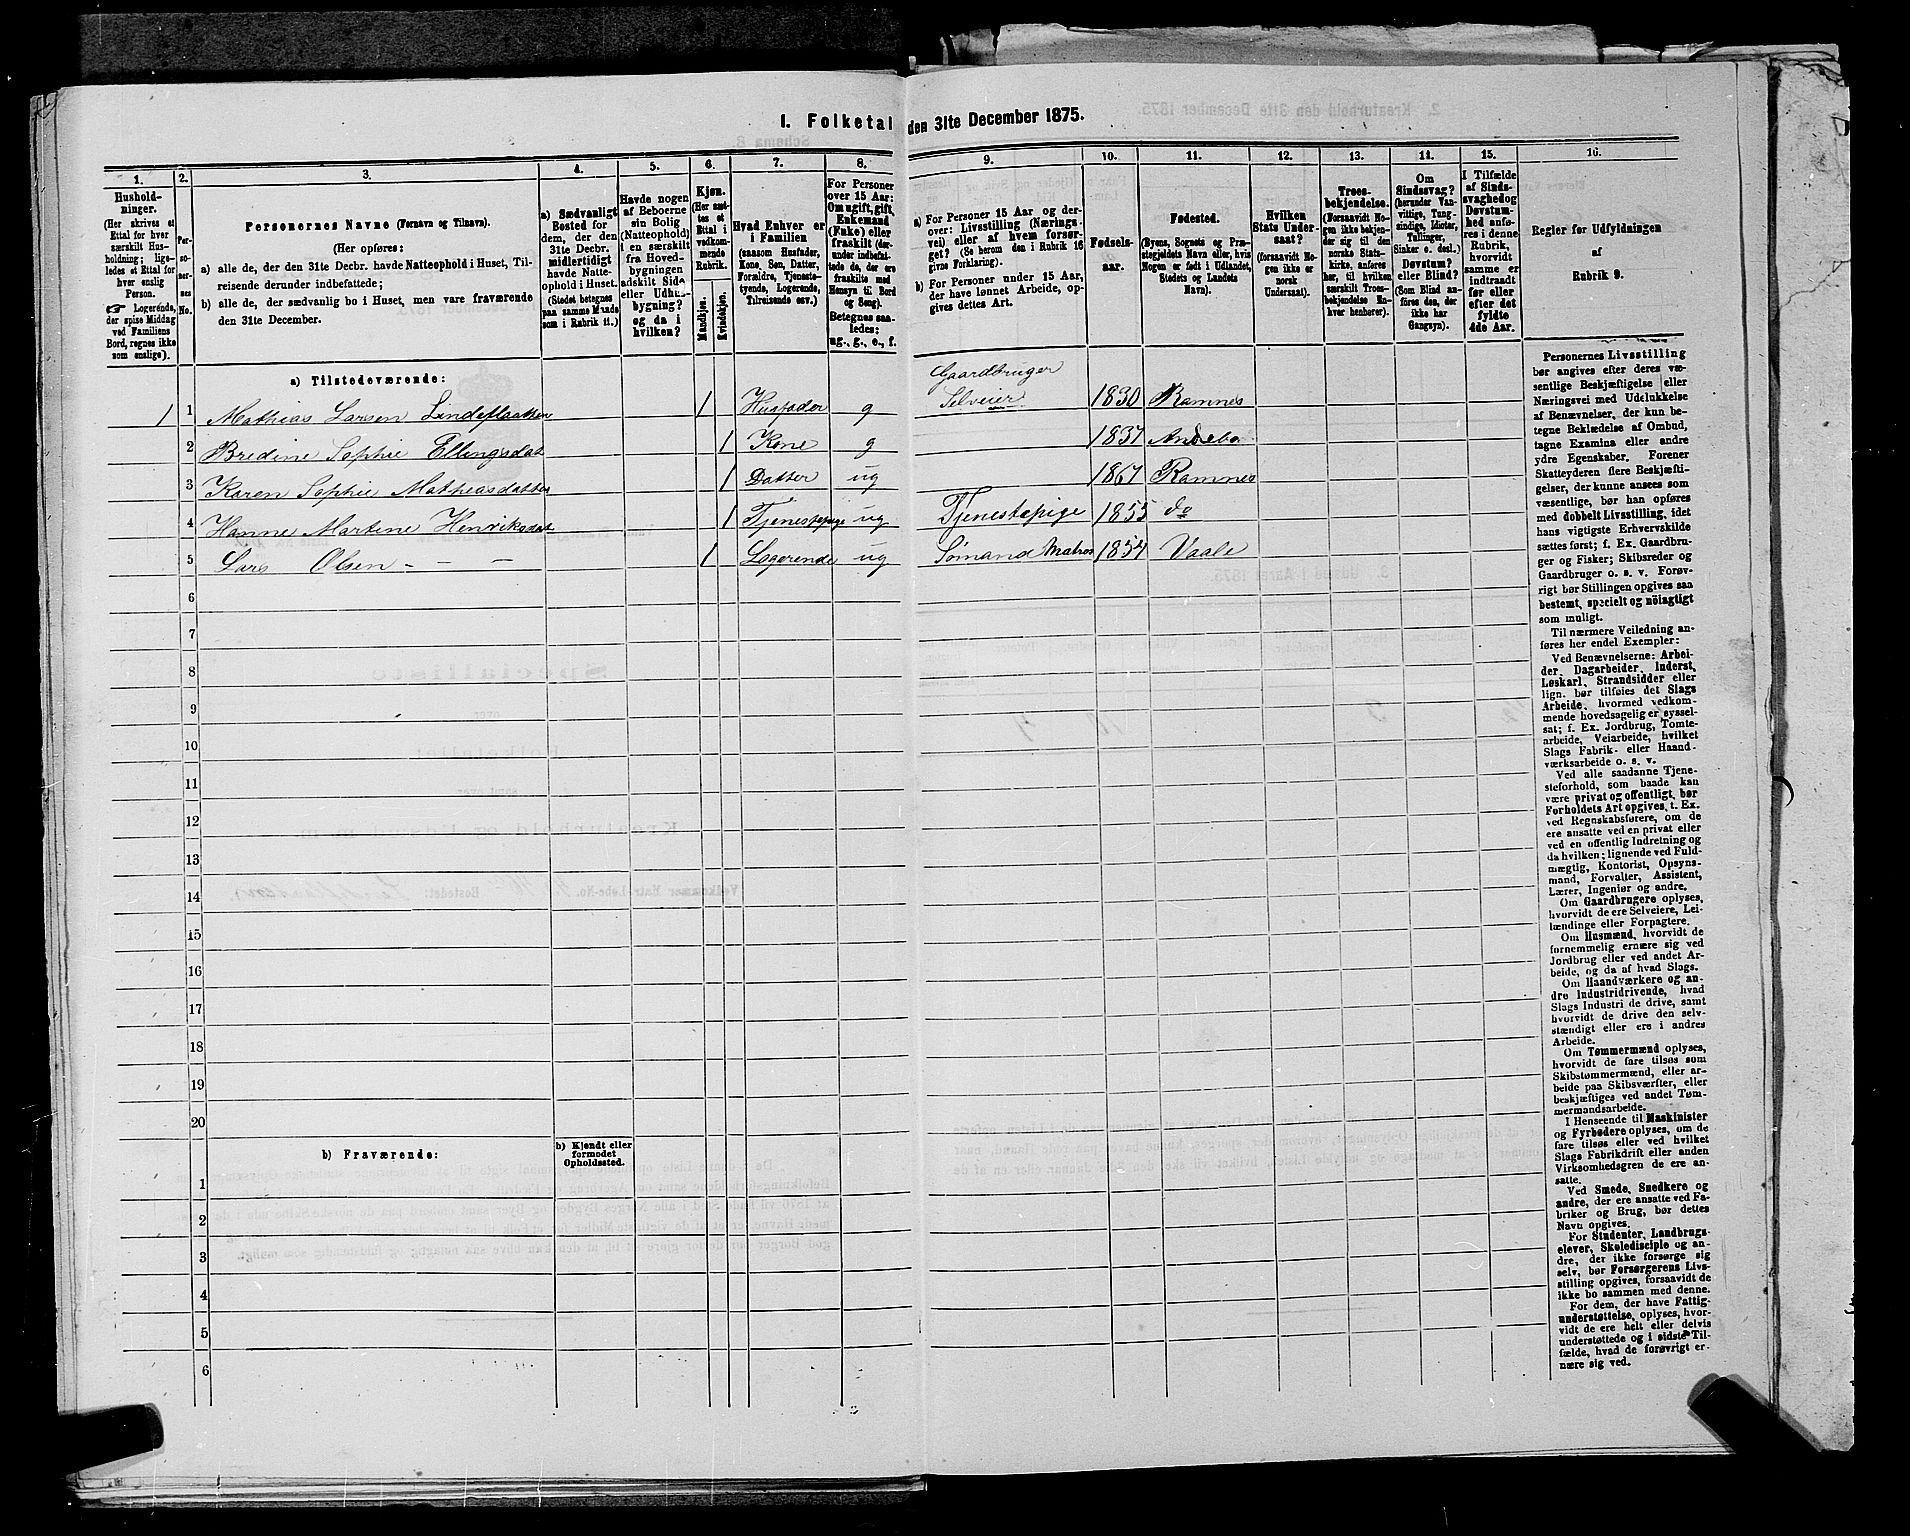 1. Folketal den 31te December 1875.
1.
Hushold-
ninger.
(Her skrives et
Ettal for hver
særskilt Hus-
holdning; lige-
ledes et Ettal for
hver enslig
Person.
☞ Logerende,
der spise Middag
ved Familiens
Bord, regnes ikke
som enslige).
2.
Per-
so-
ner-
nes
No.
3.
Personernes Navne (Fornavn og Tilnavn).
(Her opføres:
a) alle de, der den 31te Decbr. havde Natteophold i Huset, Til-
reisende derunder indbefattede;
b) alle de, der sædvanlig bo i Huset, men vare fraværende
den 31te December.
4.
a) Sædvanligt
Bosted for
dem, der den
31te Decbr.
midlertidigt
havde Natte-
ophold i Huset.
(Stedet betegnes
paa samme Maade
som i Rubrik 11.)
5.
Havde nogen
af Beboerne
sin Bolig
(Natteophold)
i en særskilt
fra Hoved-
bygningen
adskilt Side
eller Udhus-
bygning?
og da i
hvilken?
6.
Kjøn.
(Her sæt-
tes et
Ettal i
vedkom-
mende
Rubrik.
Mandkjøn.
Kvindekjøn.
7.
Hvad Enhver er
i Familien
(saasom Husfader,
Kone, Søn, Datter,
Forældre, Tjeneste-
tyende, Logerende,
Tilreisende osv.)
8.
For Personer
over 15 Aar:
Om ugift, gift,
Enkemand
(Enke) eller
fraskilt (der-
under indbefat-
tede de, der ere
fraskilte med
Hensyn til Bord
og Seng).
Betegnes saa-
ledes:
ug., g., e., f.
9.
a) For Personer 15 Aar og der-
over: Livsstilling (Nærings-
vei) eller af hvem forsør-
get? (Se herom den i Rubrik 16
givne Forklaring).
b) For Personer under 15 Aar,
der have lønnet Arbeide, op-
gives dettes Art.
10.
Fødsels-
aar.
11.
Fødested.
(Byens, Sognets og Præ-
stegjeldets Navn eller, hvis
Nogen er født i Udlandet,
Stedets og Landets
Navn).
12.
Hvilken
Stats Under-
saat?
(forsaavidt No-
gen ikke er
norsk
Undersaat).
13.
Troes-
bekjendelse.
(Forsaavidt No-
gen ikke bekjen-
der sig til den
norske Stats-
kirke, anføres
her, til hvilken
særskilt Troes-
bekjendelse En-
hver henhører).
14.
Om
Sindssvag?
(herunder Van-
vittige, Tung-
sindige, Idioter,
Tullinger,
Sinker o. desl.)
Døvstum?
eller Blind?
(Som Blind an-
føres den, der
ikke har
Gangsyn).
15.
I Tilfælde
af Sinds-
svaghed og
Døvstum-
hed anfø-
res i denne
Rubrik,
hvorvidt
samme er
indtraadt
før eller
efter det
fyldte
4de Aar.
16.
Regler for Udfyldningen
af
Rubrik 9.
a) Tilstedeværende:
1 1 Mathias Larsen Lindeflaatten 1 Husfader g Gaardbruger Selveier 1830 Ramnes
2 Bredine Sophie Ellingsdat 1 Kone g 1837 Andebo
3 Karen Sophie Mathiasdatter 1 Datter ug 1867 Ramnes
4 Hanne Martine Henriksdat 1 Tjenestepige ug Tjenestepige 1855 do
5 Lars Olsen - - - 1 Logerende ug Sømand Matros 1854 Vaale
6
7
8
9
10
11
12
13
14
15
16
17
18
19
20
b) Fraværende:
b) Kjendt eller
formodet
Opholdssted.
1
2
3
4
5
6
Personernes Livsstilling
bør angives efter deres væ-
sentlige Beskjæftigelse eller
Næringsvei med Udelukkelse
af Benævnelser, der kun be-
tegne Beklædelse af Ombud,
tagne Examina eller andre
ydre Egenskaber. Forener
Skatteyderen flere Beskjæfti-
gelser, der kunne ansees som
væsentlige, bør han opføres
med dobbelt Livsstilling, idet
hans vigtigste Erhvervskilde
sættes først; f. Ex. Gaardbru-
ger og Fisker; Skibsreder og
Gaardbruger o. s. v. Forøv-
rigt bør Stillingen opgives saa
bestemt, specielt og nöiagtigt
som muligt.
Til nærmere Veiledning an-
føres her endel Exempler:
Ved Benævnelserne: Arbei-
der, Dagarbeider, Inderst,
Løskarl, Strandsidder eller
lign. bør tilføies det Slags
Arbeide, hvormed vedkom-
mende hovedsagelig er syssel-
sat; f. Ex. Jordbrug, Tomte-
arbeide, Veiarbeide, hvilket
Slags Fabrik- eller Haand-
værksarbeide o. s. v.
Ved alle saadanne Tjene-
steforhold, som baade kan
være privat og offentligt, bør
Forholdets Art opgives, t. Ex.
ved Regnskabsførere, om de
ere ansatte ved en privat eller
ved en offentlig Indretning og
da hvilken; lignende ved Fuld-
mægtig, Kontorist, Opsyns-
mand, Forvalter, Assistent,
Lærer, Ingeniør og andre.
Om Gaardbrugere oplyses,
hvorvidt de ere Selveiere, Lei-
lændinge eller Forpagtere.
Om Husmænd, hvorvidt de
fornemmelig ernære sig ved
Jordbrug eller ved andet Ar-
beide, og da af hvad Slags.
Om Haandværkere og an-
dre Industridrivende, hvad
Slags Industri de drive, samt
hvorvidt de drive den selv-
stændigt eller ere i andres
Arbeide.
Om Tømmermænd oplyses,
hvorvidt de fare tilsøs som
Skibstømmermænd, eller ar-
beide paa Skibsværfter, eller
beskjæftiges ved andet Tøm-
mermandsarbeide.
I Henseende til Maskinister
og Fyrbødere oplyses, om de
fare tilsøs eller ved hvilket
Slags Fabrikdrift eller anden
Virksomhedsgren de ere an-
satte.
Ved Smede, Snedkere og
andre, der ere ansatte ved Fa-
briker og Brug, bør dettes
Navn opgives.
For Studenter, Landbrugs-
elever, Skoledisciple og an-
dre, der ikke forsørge sig
selv, bør Forsørgerens Livs-
stilling opgives, forsaavidt de
ikke bo sammen med denne.
For dem, der have Fattig-
understøttelse, oplyses, hvor-
vidt de ere helt eller delvis
understøttede og i sidste Til-
fælde, hvad de forøvrigt er-
nære sig ved.